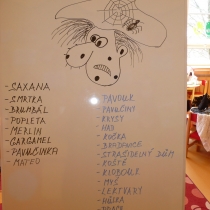 - SAXANA
- SMRTKA
- BRUMBÁL
- POPLETA
- MERLIN
- GARGAMEL
- PAVUČINKA
- MATEO
- PAVOUK
- PAVUČINY
- KRYSY
- HAD
- KOČKA
- BRADAVICE
- STRAŠIDELNÝ DŮM
- KOŠTĚ
- KLOBOUK
- MYŠ
- LEKTVARY
- HŮLKA